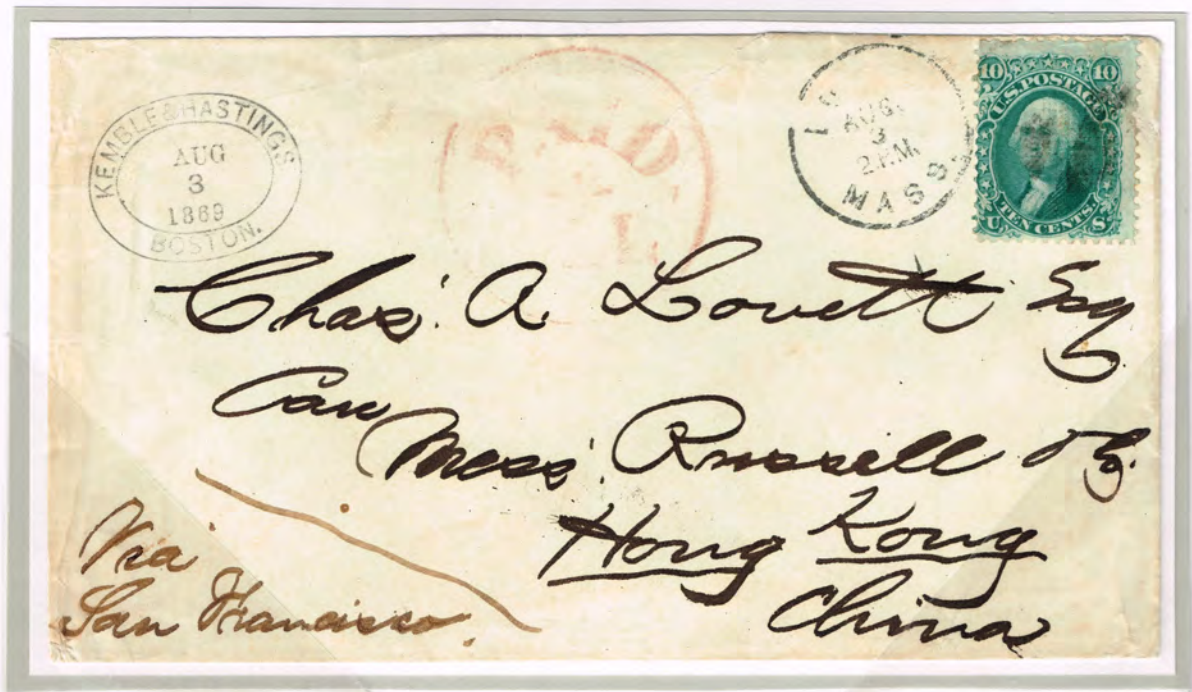 KEMBLE & HASTINGS
AUG
3
1869
BOSTON.
AUG.
3
2 P.M.
MASS.
10 10
U.S. POSTAGE
TEN CENTS.
U S
Chas. A. Lovett Esq
Care
Mess. Russell & Co.
Hong Kong
China
Via
San Francisco.